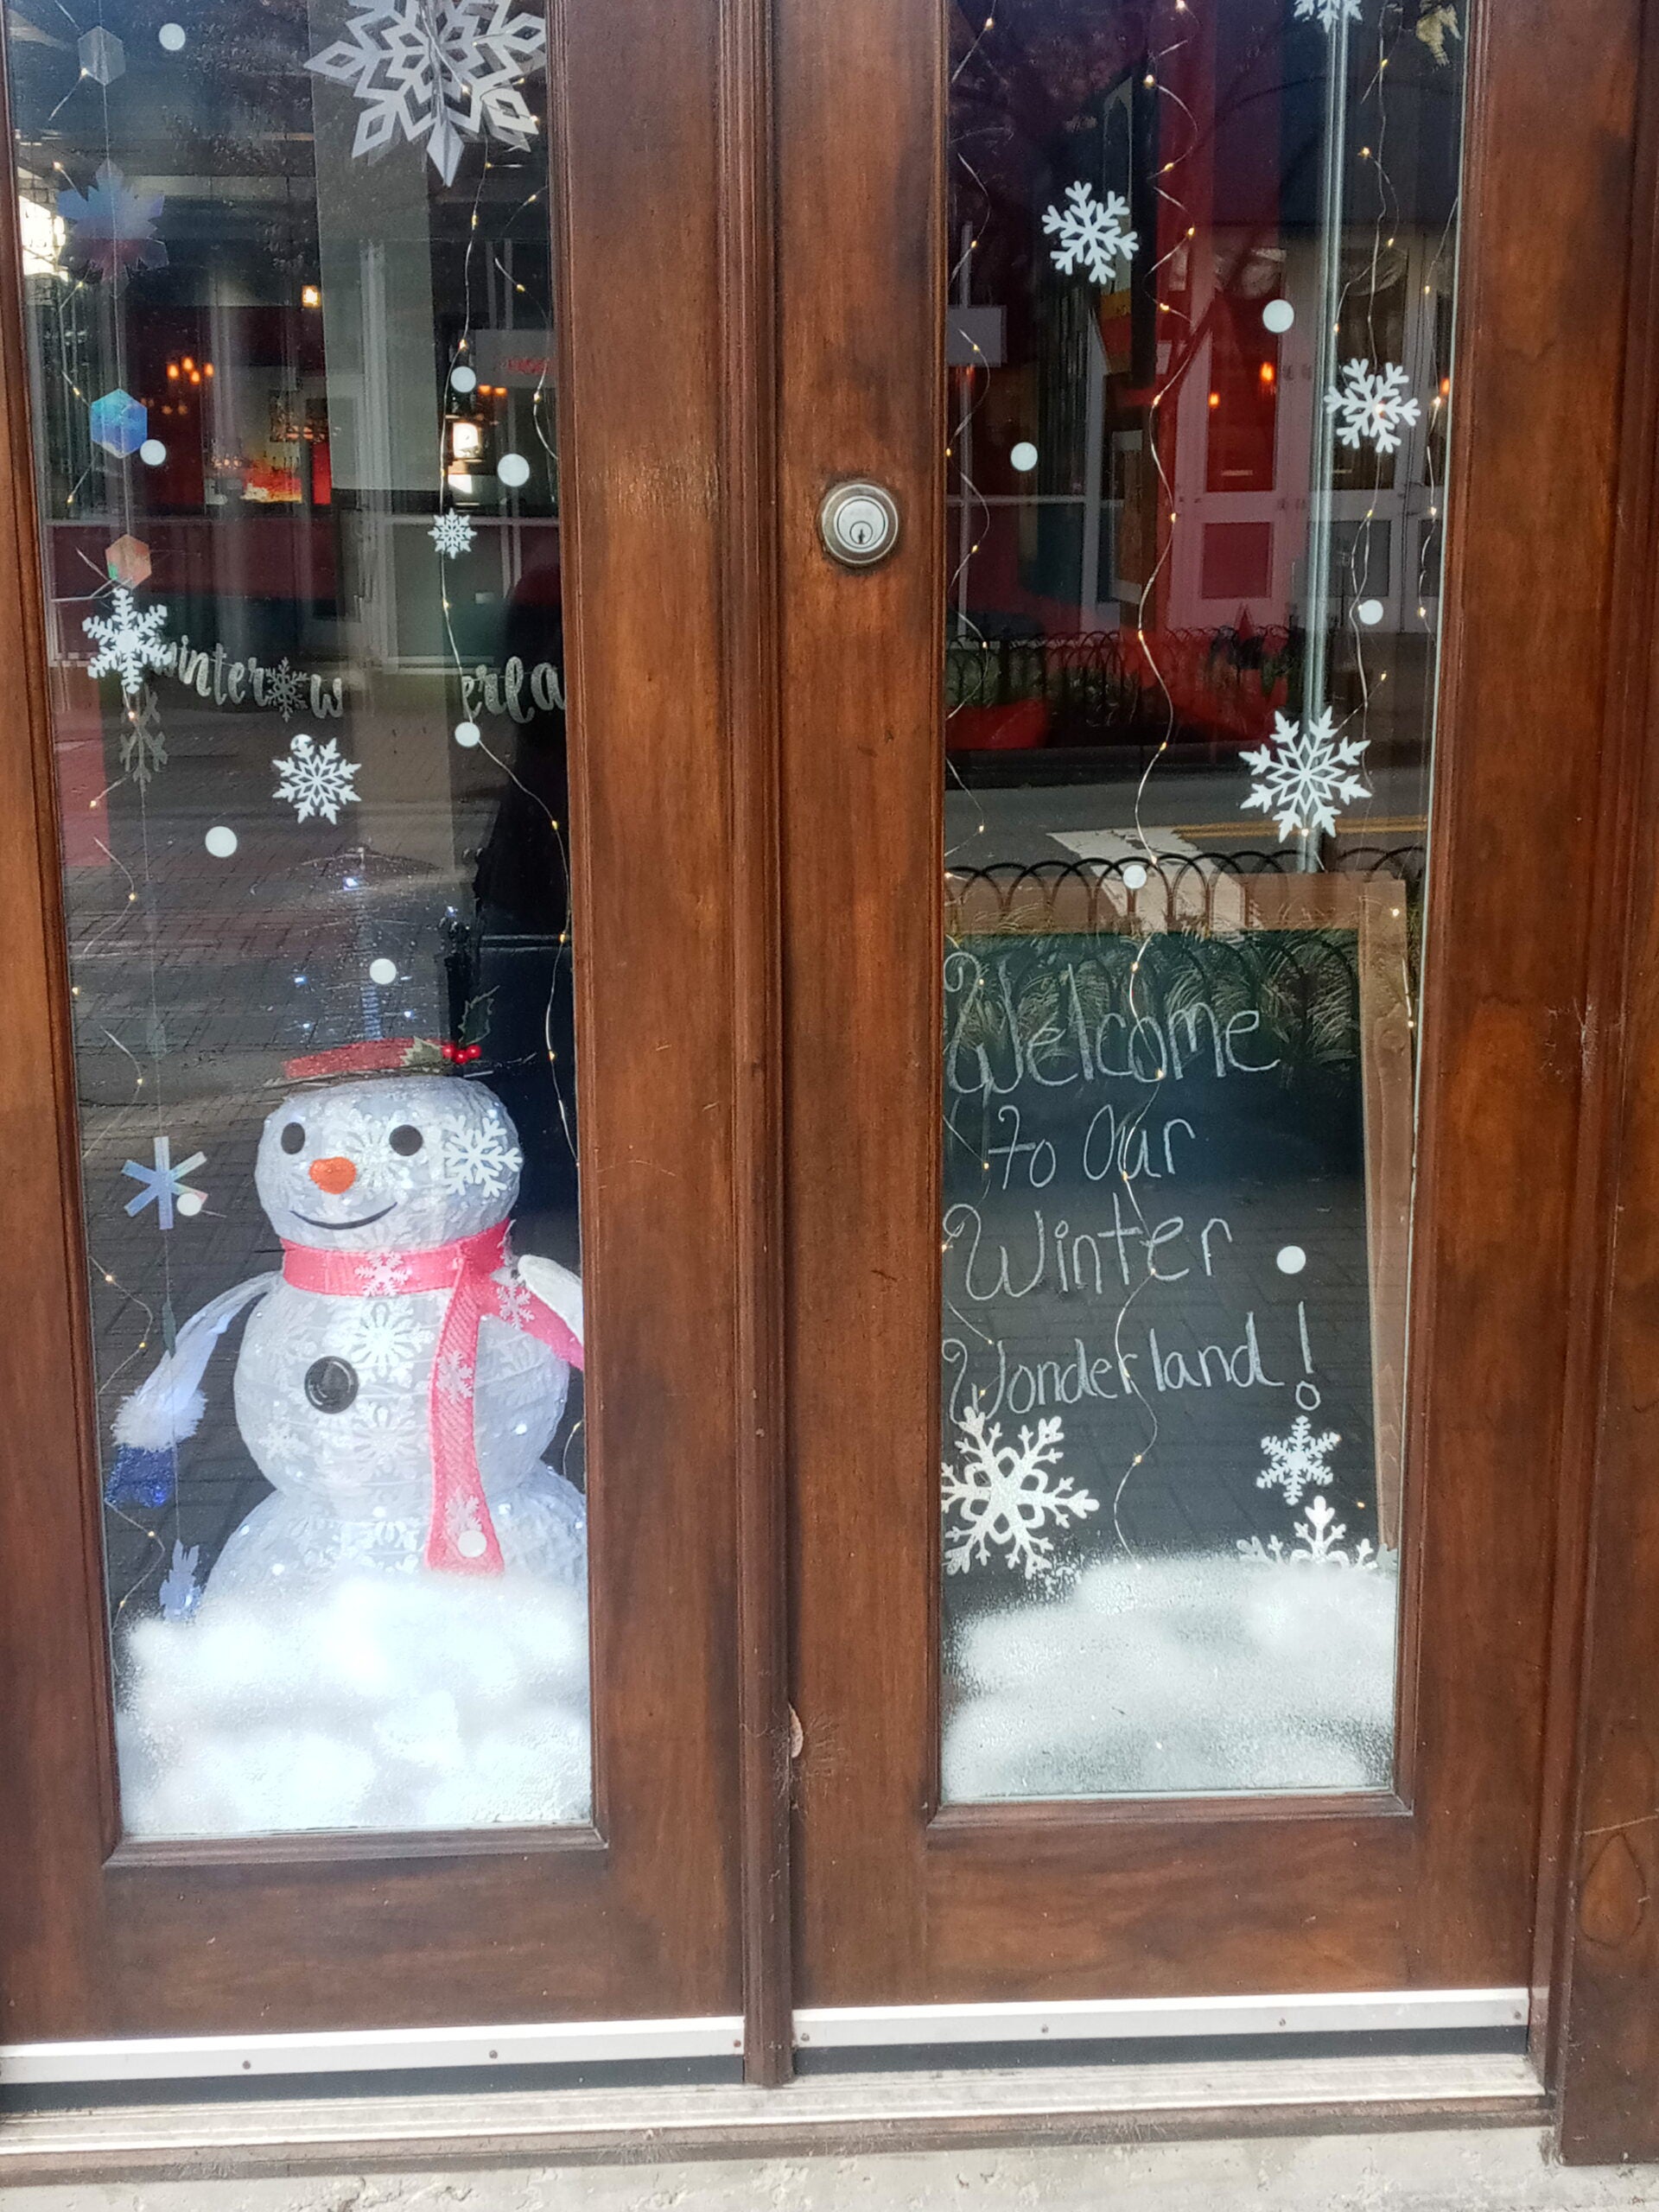 winter w erla
Welcome
to Our
Winter
Wonderland!